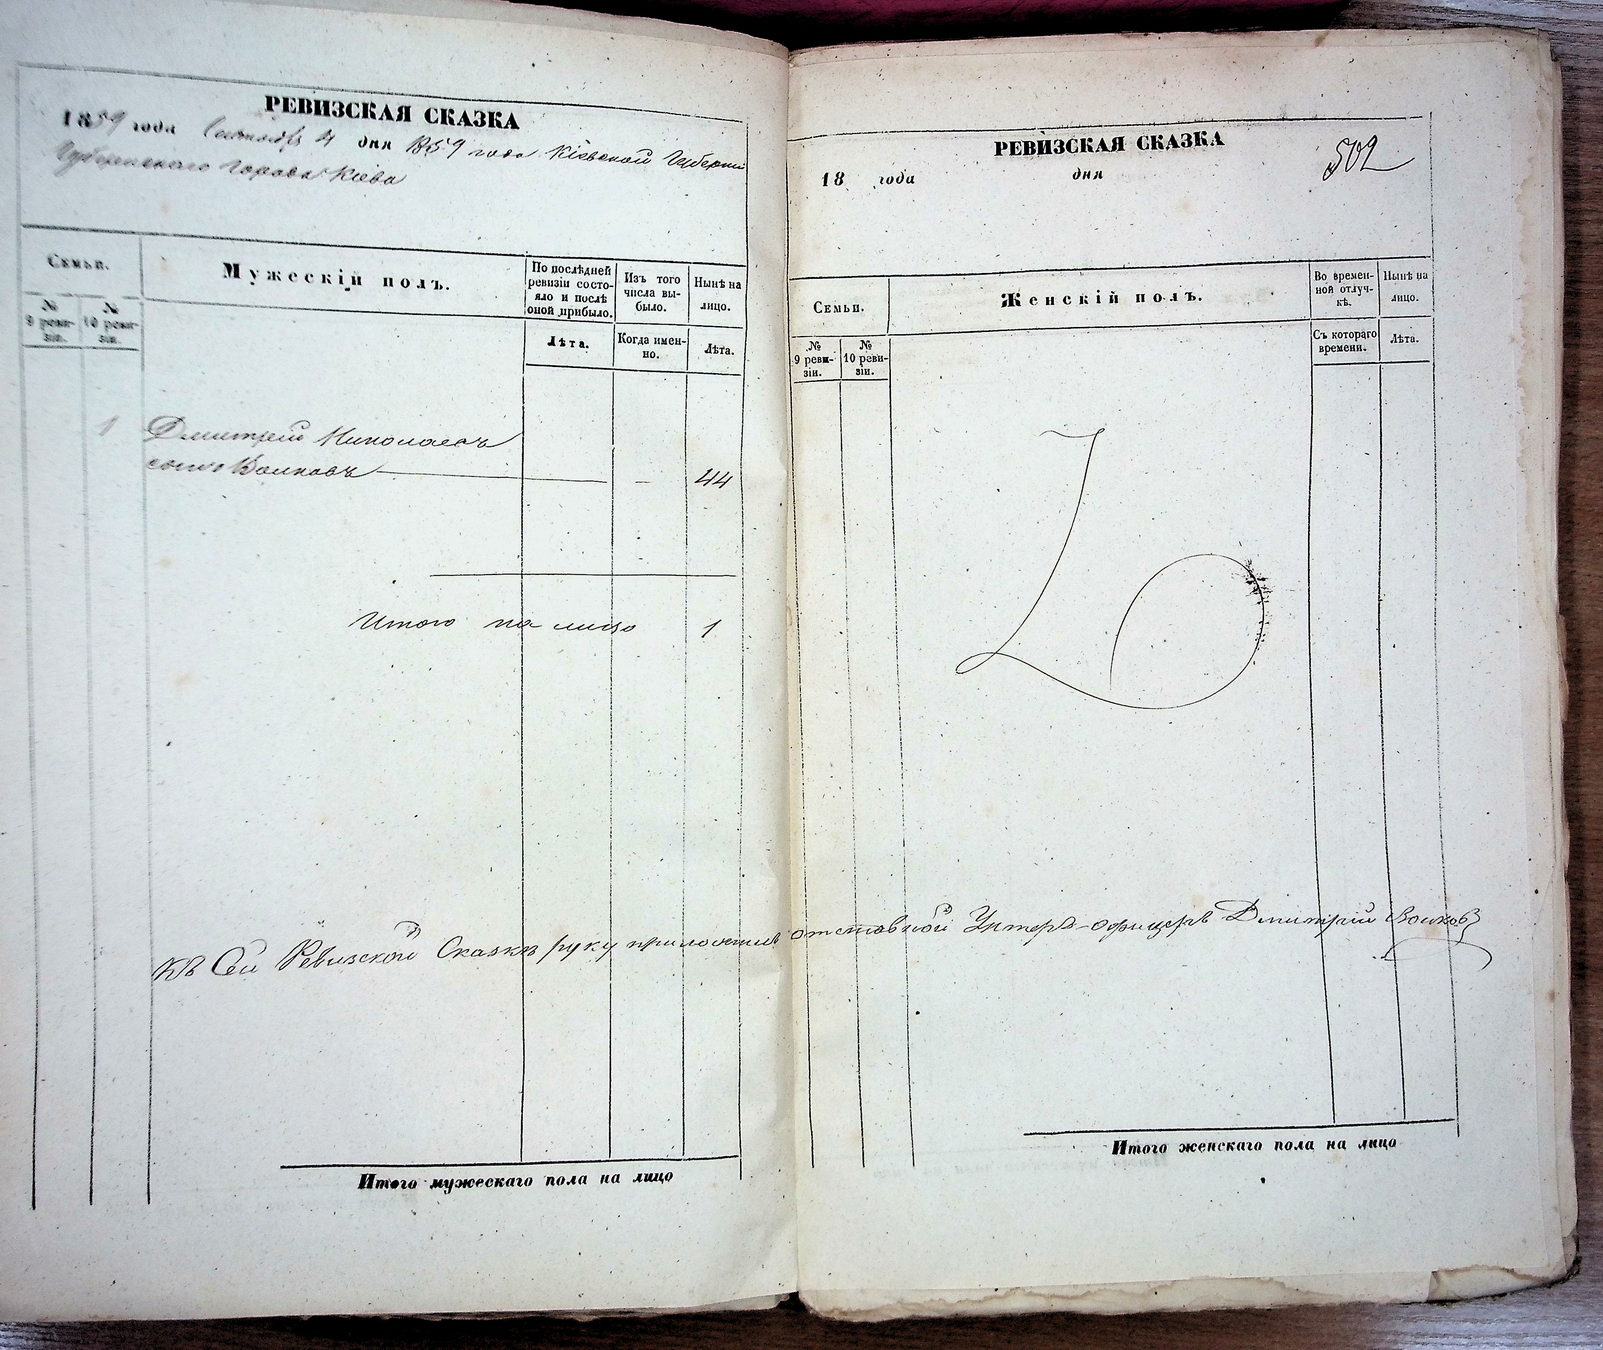 РЕВИЗСКАЯ СКАЗКА
1859 года Сентября 4 дня 1859 года Кіевской Губерніи
Губернскаго города Кіева
Семьи.
Мужескій полъ.
По послѣдней ревизіи состояло и послѣ оной прибыло.
Изъ того числа выбыло.
Нынѣ на лицо.
№ 9 ревизіи.
№ 10 ревизіи.
Лѣта.
Когда именно.
Лѣта.
1 Дмитрій Николаевъ
сынъ Волковъ — 44
Итого на лицо 1
Итого мужескаго пола на лицо
РЕВИЗСКАЯ СКАЗКА
502
18 года дня
Семьи.
Женскій полъ.
Во временной отлучкѣ.
Нынѣ на лицо.
№ 9 ревизіи.
№ 10 ревизіи.
Съ котораго времени.
Лѣта.
Къ Сей Ревизской Сказкѣ руку приложилъ отставной Унтеръ-офицеръ Дмитрій Волковъ
Итого женскаго пола на лицо